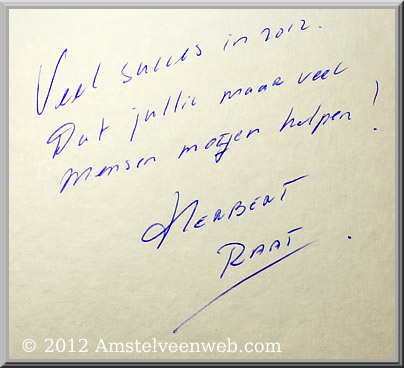 Veel succes in 2012.
Dat jullie maar veel
mensen mogen helpen!
Herbert
Raat.
© 2012 Amstelveenweb.com